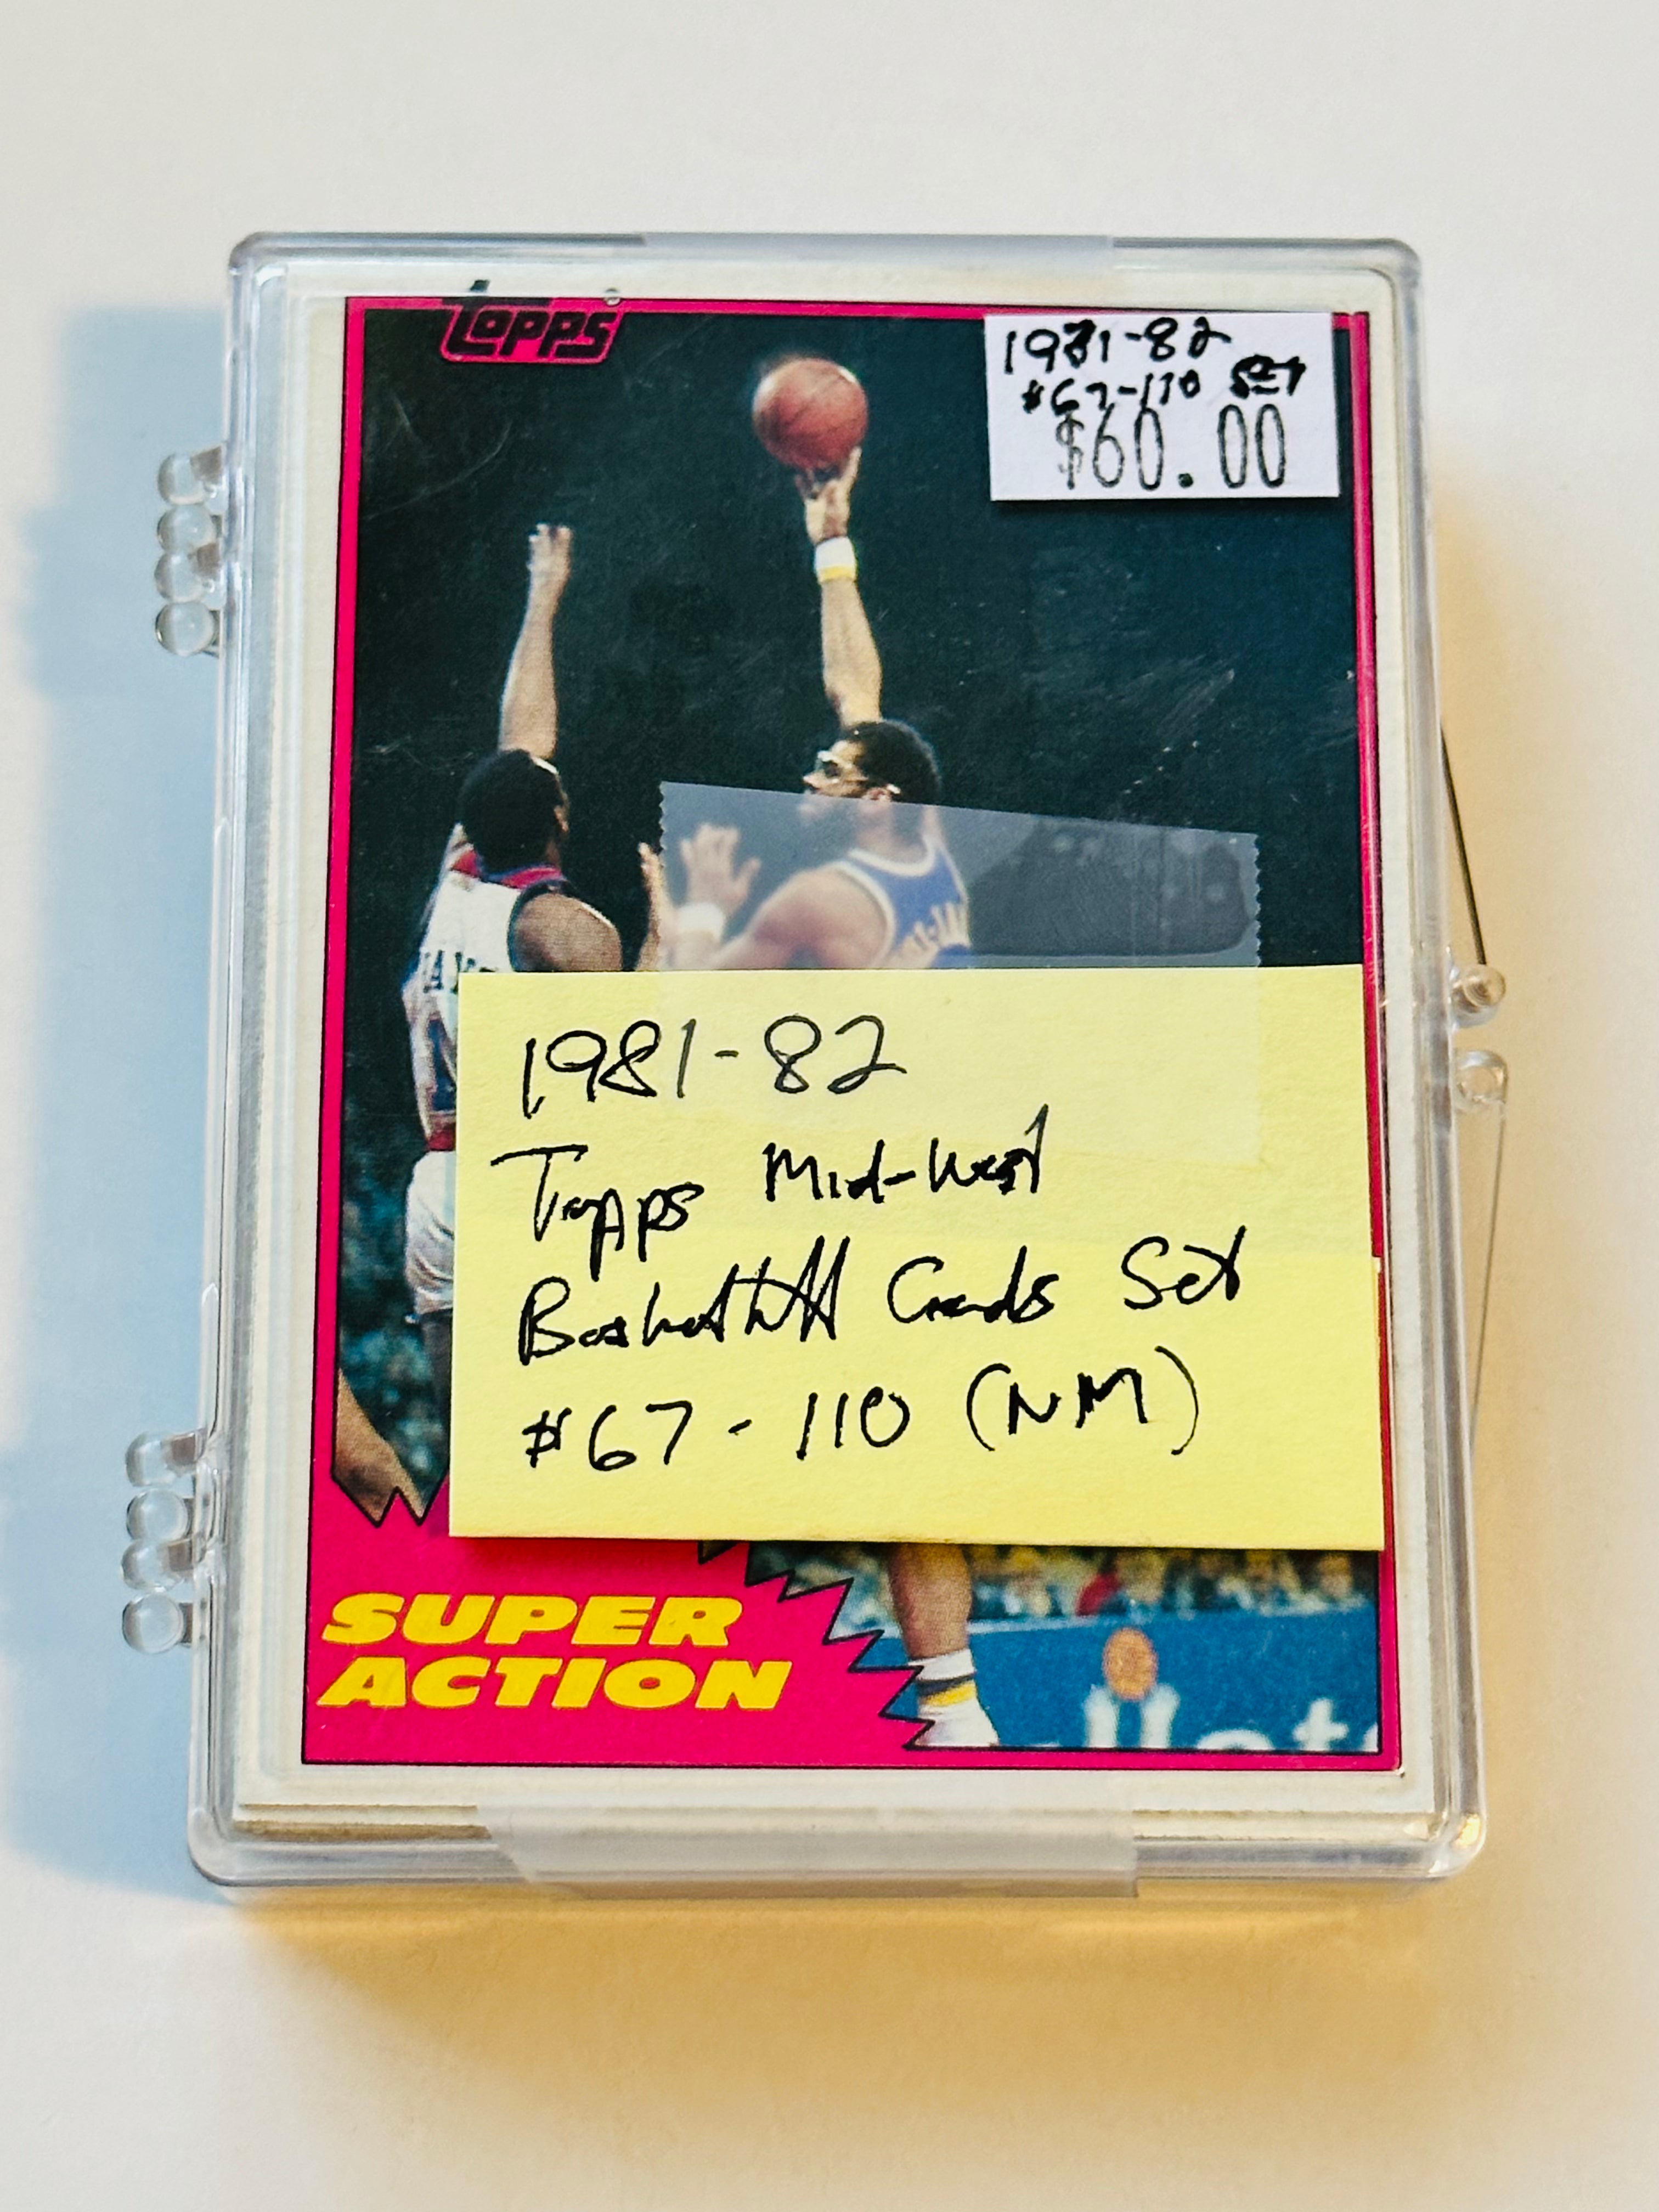 TOPPS
1981-82
#67-110 SET
$60.00
1981-82
Topps Mid-West
Basketball Cards Set
#67-110 (NM)
SUPER
ACTION